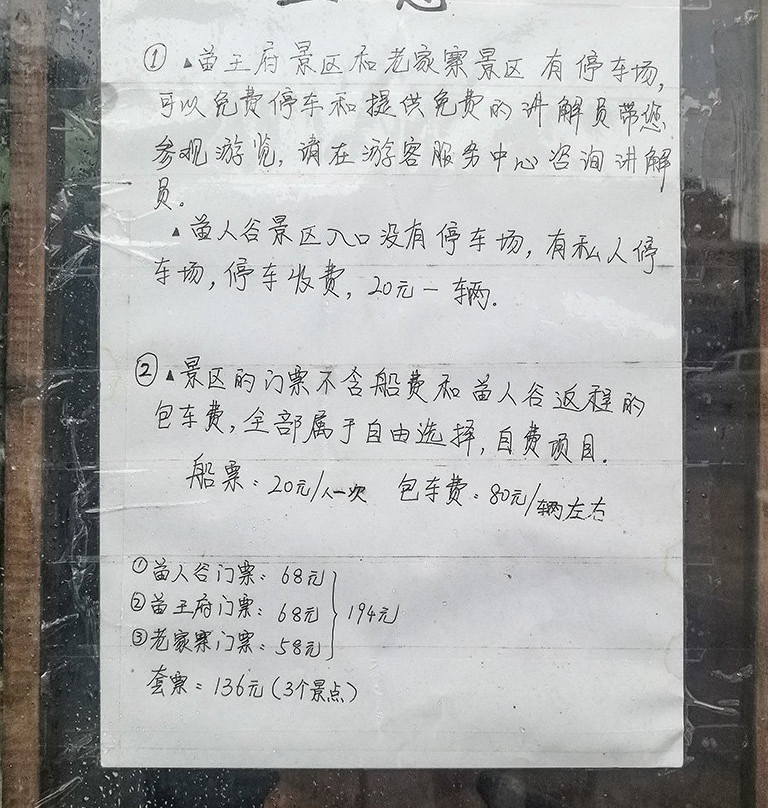 ① ▲苗王府景区和老家寨景区 有停车场,
可以免费停车和提供免费的讲解员带您
参观游览, 请在游客服务中心咨询讲解
员。
▲苗人谷景区入口没有停车场, 有私人停
车场, 停车收费, 20元一车辆.
② ▲景区的门票不含船费和苗人谷返程的
包车费, 全部属于自由选择, 自费项目.
船票: 20元/人一次 包车费: 80元/辆左右
①苗人谷门票: 68元
②苗王府门票: 68元 } 194元
③老家寨门票: 58元
套票: 136元(3个景点)